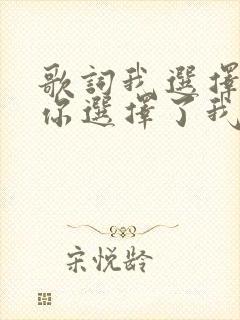 歌詞我選擇
你選擇了我
宋悦龄